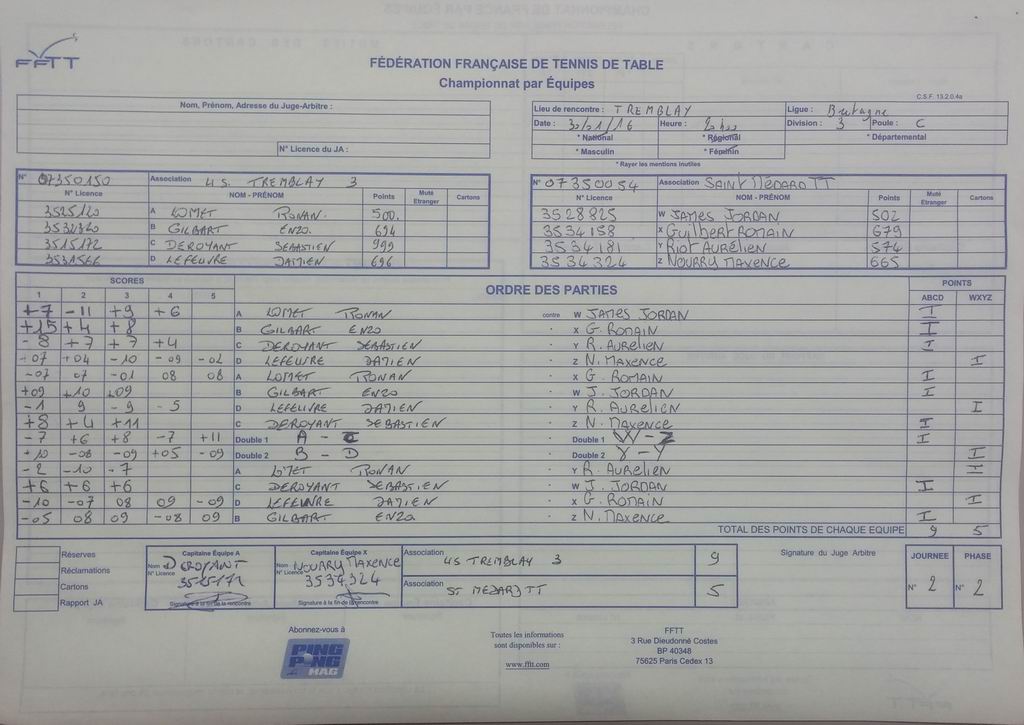 FFTT
FÉDÉRATION FRANÇAISE DE TENNIS DE TABLE
Championnat par Équipes
C.S.F. 13.2.0.4a
Nom, Prénom, Adresse du Juge-Arbitre :
N° Licence du JA :
Lieu de rencontre : TREMBLAY Ligue : Bretagne
Date : 30/01/16 Heure : 20h00 Division : 3 Poule : C
* National * Régional * Départemental
* Masculin * Féminin
* Rayer les mentions inutiles
N° 07350150 Association U S. TREMBLAY 3
N° Licence NOM - PRÉNOM Points Muté Etranger Cartons
3525120 A LOMET RONAN. 500.
3532320 B GILBART ENZO 694
3515172 C DEROYANT SEBASTIEN 999
3531566 D LEFEUVRE DAMIEN 696
N° 07350054 Association SAINT MEDARD TT
N° Licence NOM - PRÉNOM Points Muté Etranger Cartons
3528825 W JAMES JORDAN 502
3534158 X GUILBERT ROMAIN 679
3534181 Y RIOT AURÉLIEN 574
3534324 Z NOURRY MAXENCE 665
SCORES ORDRE DES PARTIES POINTS
1 2 3 4 5 ABCD WXYZ
+7 -11 +9 +6 A LOMET RONAN contre W JAMES JORDAN I
+15 +4 +8 B GILBART ENZO X G. ROMAIN I
-8 +7 +7 +4 C DEROYANT SEBASTIEN Y R. AURELIEN I
+07 +04 -10 -09 -02 D LEFEUVRE DAMIEN Z N. MAXENCE I
-07 07 -01 08 08 A LOMET RONAN X G. ROMAIN I
+09 +10 +09 B GILBART ENZO W J. JORDAN I
-1 9 -9 -5 D LEFEUVRE DAMIEN Y R. AURELIEN I
+8 +4 +11 C DEROYANT SEBASTIEN Z N. MAXENCE I
-7 +6 +8 -7 +11 Double 1 A - C Double 1 W-Z I
+10 -08 -09 +05 -09 Double 2 B - D Double 2 I
-2 -10 -7 A LOMET RONAN Y R. AURELIEN I
+6 +6 +6 C DEROYANT SEBASTIEN W J. JORDAN I
-10 -07 08 09 -09 D LEFEUVRE DAMIEN X G. ROMAIN I
-05 08 09 -08 09 B GILBART ENZO Z N. MAXENCE I
TOTAL DES POINTS DE CHAQUE EQUIPE 9 5
Réserves
Réclamations
Cartons
Rapport JA
Capitaine Équipe A
Nom DEROYANT
N° Licence 3515172
Signature à la fin de la rencontre
Capitaine Équipe X
Nom NOURRY MAXENCE
N° Licence 3534324
Signature à la fin de la rencontre
Association US TREMBLAY 3 9
Association ST MEDARD TT 5
Signature du Juge Arbitre
JOURNEE PHASE
N° 2 N° 2
Abonnez-vous à
PING PONG MAG
Toutes les informations
sont disponibles sur :
www.fftt.com
FFTT
3 Rue Dieudonné Costes
BP 40348
75625 Paris Cedex 13